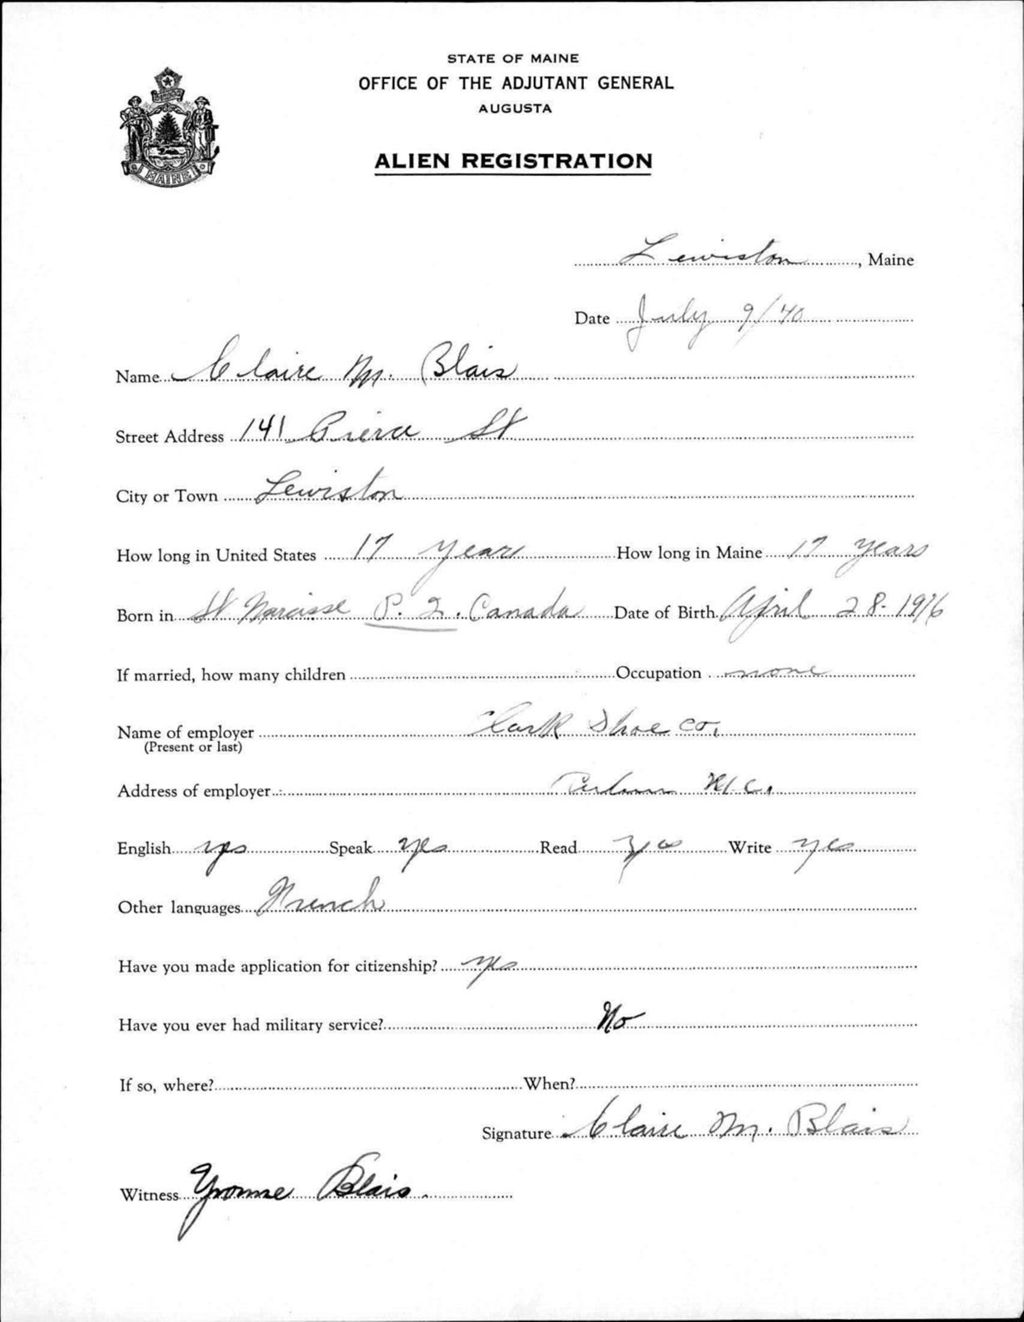 STATE OF MAINE
OFFICE OF THE ADJUTANT GENERAL
AUGUSTA
ALIEN REGISTRATION
MAINE
Lewiston, Maine
Date July 9/40
Name Claire M. Blais
Street Address 141 Pierce St
City or Town Lewiston
How long in United States 17 years How long in Maine 17 years
Born in St Narcisse P. Q. Canada Date of Birth April 28-1916
If married, how many children Occupation none
Name of employer Clark Shoe Co.
(Present or last)
Address of employer Auburn
English yes Speak yes Read yes Write yes
Other languages French
Have you made application for citizenship? yes
Have you ever had military service? No
If so, where? When?
Signature Claire M. Blais
Witness Yvonne Blais.